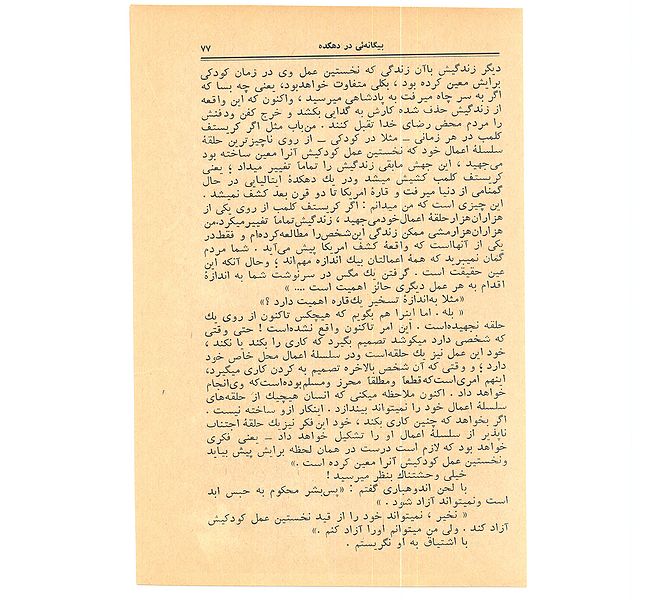 بیگانه‌ئی در دهکده ۷۷
دیگر زندگیش باآن زندگی که نخستین عمل وی در زمان کودکی
برایش معین کرده بود ، بکلی متفاوت خواهدبود، یعنی چه بسا که
اگر به سر چاه میرفت به پادشاهی میرسید ، واکنون که این واقعه
از زندگیش حذف شده کارش به گدایی بکشد و خرج کفن ودفنش
را مردم محض رضای خدا تقبل کنند . من‌باب مثل اگر کریستف
کلمب در هر زمانی ــ مثلا در کودکی ــ از روی ناچیزترین حلقهٔ
سلسلهٔ اعمال خود که نخستین عمل کودکیش آنرا معین ساخته بود
می‌جهید ، این جهش مابقی زندگیش را تماماً تغییر میداد ؛ یعنی
کریستف کلمب کشیش میشد ودر یك دهکدهٔ ایتالیایی در حال
گمنامی از دنیا میرفت و قارهٔ امریکا تا دو قرن بعد کشف نمیشد .
این چیزی است که من میدانم : اگر کریستف کلمب از روی یکی از
هزاران‌هزارحلقهٔ اعمال‌خودمی‌جهید ، زندگیش‌تماماً تغییرمیکرد.من
هزاران‌هزارمشی ممکن زندگی این‌شخص‌را مطالعه‌کرده‌ام و فقط‌در
یکی از آنهااست که واقعهٔ کشف امریکا پیش می‌آید . شما مردم
گمان نمیبرید که همهٔ اعمالتان بیك اندازه مهم‌اند ؛ وحال آنکه این
عین حقیقت است . گرفتن یك مگس در سرنوشت شما به اندازهٔ
اقدام به هر عمل دیگری حائز اهمیت است .... »
«مثلا به‌اندازهٔ تسخیر یك‌قاره اهمیت دارد ؟»
« بله . اما اینرا هم بگویم که هیچکس تاکنون از روی یك
حلقه نجهیده‌است . این امر تاکنون واقع نشده‌است ! حتی وقتی
که شخصی دارد میکوشد تصمیم بگیرد که کاری را بکند یا نکند ،
خود این عمل نیز یك حلقه‌است ودر سلسلهٔ اعمال محل خاص خود
دارد ؛ و وقتی که آن شخص بالاخره تصمیم به کردن کاری میگیرد،
اینهم امری‌است‌که‌قطعاً ومطلقاً محرز ومسلم‌بوده‌است‌که وی‌انجام
خواهد داد . اکنون ملاحظه میکنی که انسان هیچیك از حلقه‌های
سلسلهٔ اعمال خود را نمیتواند بیندازد . اینکار ازو ساخته نیست .
اگر بخواهد که چنین کاری بکند ، خود این‌فکر نیزیك حلقهٔ اجتناب
ناپذیر از سلسلهٔ اعمال او را تشکیل خواهد داد ــ یعنی فکری
خواهد بود که لازم است درست در همان لحظه برایش پیش بیاید
ونخستین عمل کودکیش آنرا معین کرده است .»
خیلی وحشتناك بنظر میرسید !
با لحن اندوهباری گفتم : «پس‌بشر محکوم به حبس ابد
است ونمیتواند آزاد شود . »
« نخیر ، نمیتواند خود را از قید نخستین عمل کودکیش
آزاد کند . ولی من میتوانم اورا آزاد کنم .»
با اشتیاق به او نگریستم .